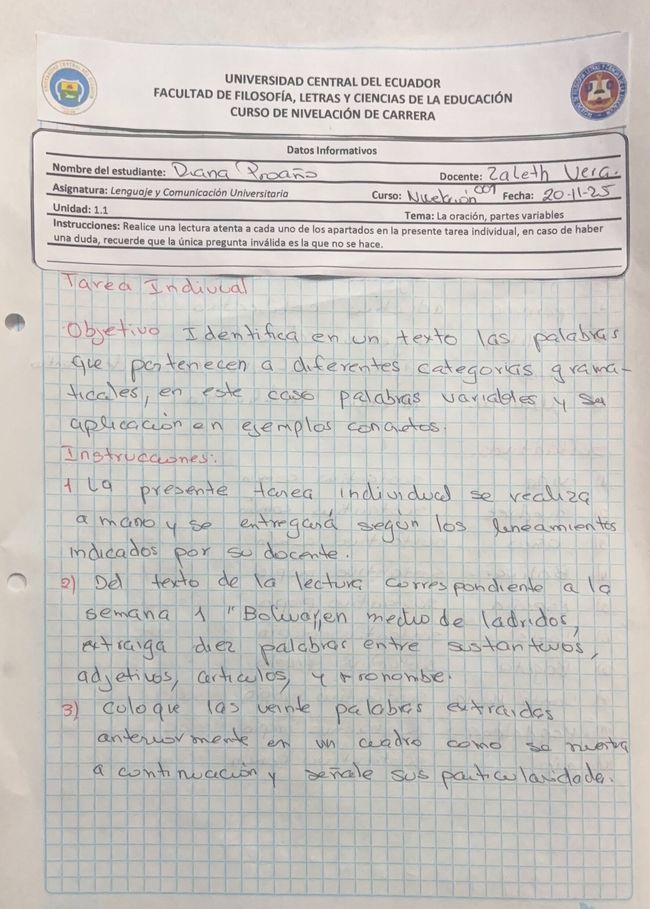 UNIVERSIDAD CENTRAL DEL ECUADOR
FACULTAD DE FILOSOFÍA, LETRAS Y CIENCIAS DE LA EDUCACIÓN
CURSO DE NIVELACIÓN DE CARRERA
Datos Informativos
Nombre del estudiante: Diana Proaño Docente: Zaleth Vera.
Asignatura: Lenguaje y Comunicación Universitaria Curso: Nivelación 001 Fecha: 20-11-25
Unidad: 1.1 Tema: La oración, partes variables
Instrucciones: Realice una lectura atenta a cada uno de los apartados en la presente tarea individual, en caso de haber
una duda, recuerde que la única pregunta inválida es la que no se hace.
Tarea Indivual
Objetivo Identifica en un texto las palabras
que pertenecen a diferentes categorías grama-
ticales, en este caso palabras variables y su
aplicación en ejemplos concretos.
Instrucciones:
1 La presente tarea individual se realiza
a mano y se entregará según los lineamientos
indicados por su docente.
2) Del texto de la lectura correspondiente a la
semana 1 "Bolivar,en medio de ladridos,
extraiga diez palabras entre sustantivos,
adjetivos, articulos, y pronombe.
3) Coloque las veinte palabras extraidas
anteriormente en un cuadro como se muestra
a continuación y señale sus particularidade.